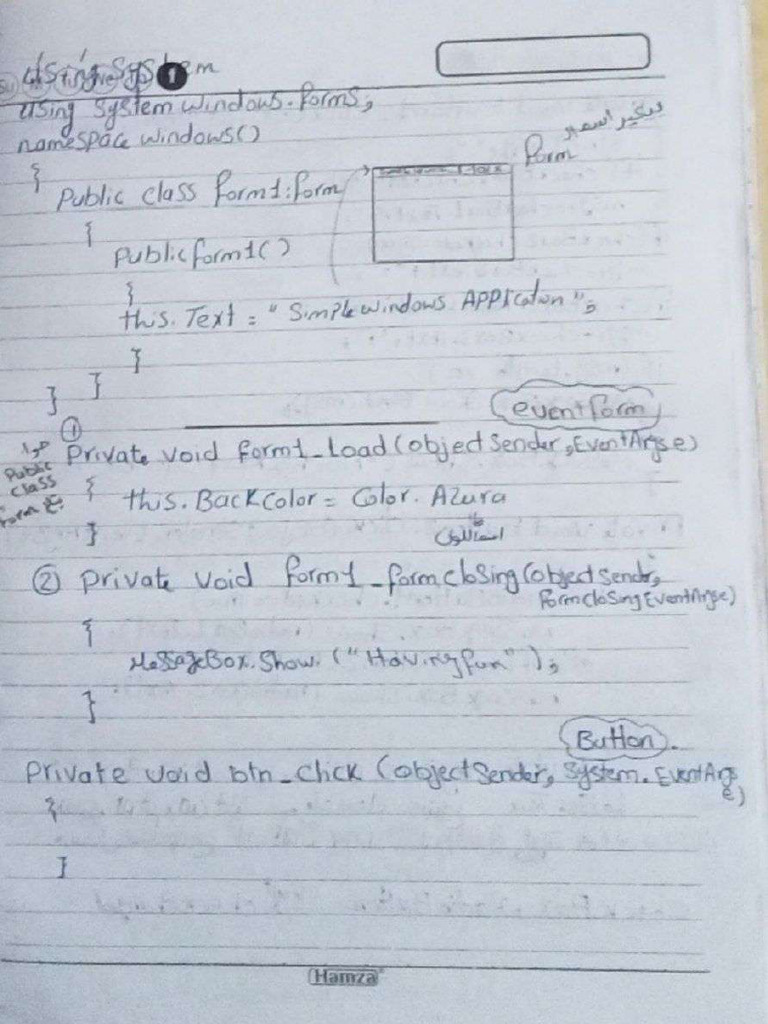 using System
using System windows.forms;
namespace windows()
{
بيغير اسم
form
Public class form1:form
{
Public form1()
{
this.Text = "Simple windows APPlicaton";
}
}
}
event form
①
Private void form1_Load(object Sender, EventArgs e)
جوا
Public
class
form
{ this.BackColor = Color. Azura
}
اسم اللون
② private void form1_formclosing(object sendr,
formclosingEventArgse)
{
MessageBox.Show. ("Having fun");
}
Button.
private void btn_click (object Sender, System.EventArgs
e)
{
}
Hamza